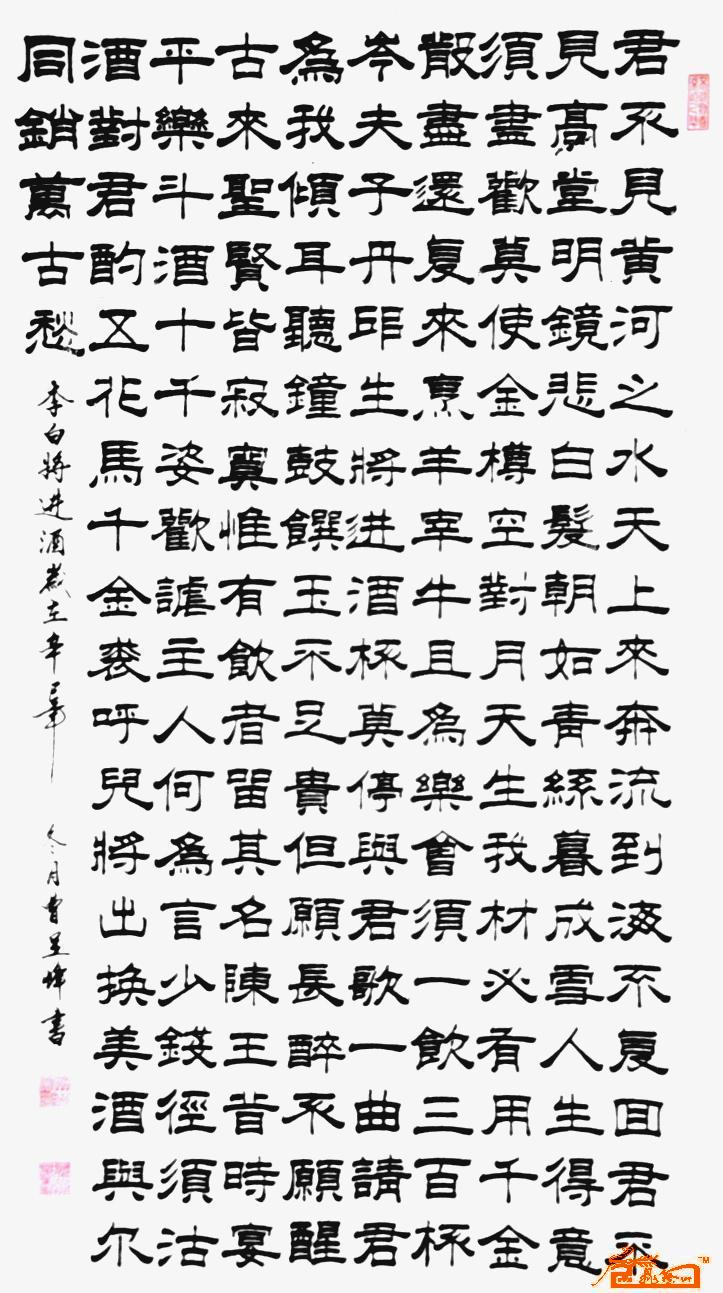 君不見黄河之水天上來奔流到海不复回君不
見高堂明鏡悲白髮朝如青絲暮成雪人生得意
須盡歡莫使金樽空對月天生我材必有用千金
散盡還复來烹羊宰牛且為樂會須一飲三百杯
岑夫子丹邱生將進酒杯莫停與君歌一曲請君
為我傾耳聽鐘鼓饌玉不足貴但願長醉不願醒
古來聖賢皆寂寞惟有飲者留其名陳王昔時宴
平樂斗酒十千姿歡謔主人何為言少錢徑須沽
酒對君酌五花馬千金裘呼兒將出换美酒與尔
同銷萬古愁
李白將進酒歲在辛 冬月曹書